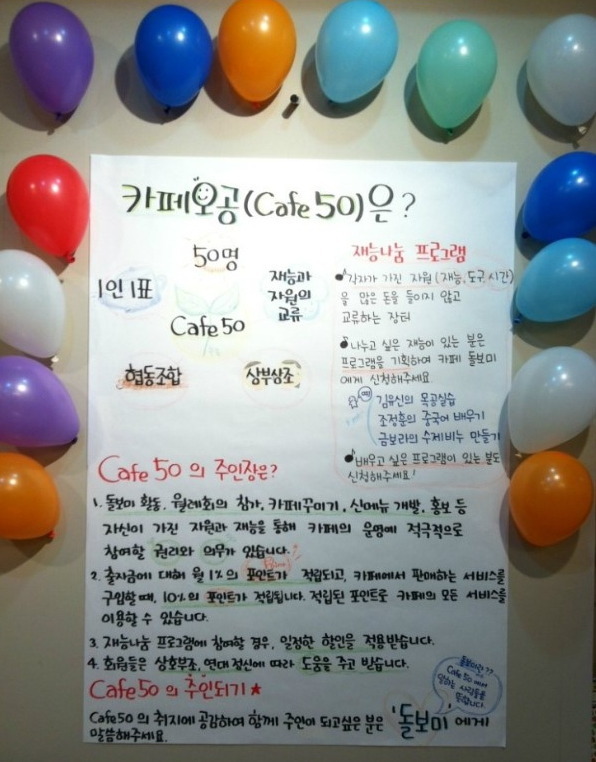 카페오공(Cafe 50)은?
50명
1인 1표
재능과
자원의
교류
Cafe 50
협동조합
상부상조
재능나눔 프로그램
각자가 가진 자원 (재능, 도구, 시간)
을 많은 돈을 들이지 않고
교류하는 장터
나누고 싶은 재능이 있는 분은
프로그램을 기획하여 카페 돌보미
에게 신청해주세요.
김유신의 목공실습
조정훈의 중국어 배우기
금보라의 수제비누 만들기
배우고 싶은 프로그램이 있는 분도
신청해주세요!
Cafe 50 의 주인장은?
1. 돌보미 활동, 월례회의 참가, 카페꾸미기, 신메뉴 개발, 홍보 등
자신이 가진 자원과 재능을 통해 카페의 운영에 적극적으로
참여할 권리와 의무가 있습니다.
2. 출자금에 대해 월 1%의 포인트가 적립되고, 카페에서 판매하는 서비스를
구입할 때, 10%의 포인트가 적립됩니다. 적립된 포인트로 카페의 모든 서비스를
이용할 수 있습니다.
3. 재능나눔 프로그램에 참여할 경우, 일정한 할인을 적용받습니다.
4. 회원들은 상호부조, 연대 정신에 따라 도움을 주고 받습니다.
Cafe 50 의 주인되기 ★
돌보미란??
Cafe 50 에서
일하는 사람들을
뜻합니다.
Cafe 50 의 취지에 공감하여 함께 주인이 되고싶은 분은 '돌보미' 에게
말씀해주세요.